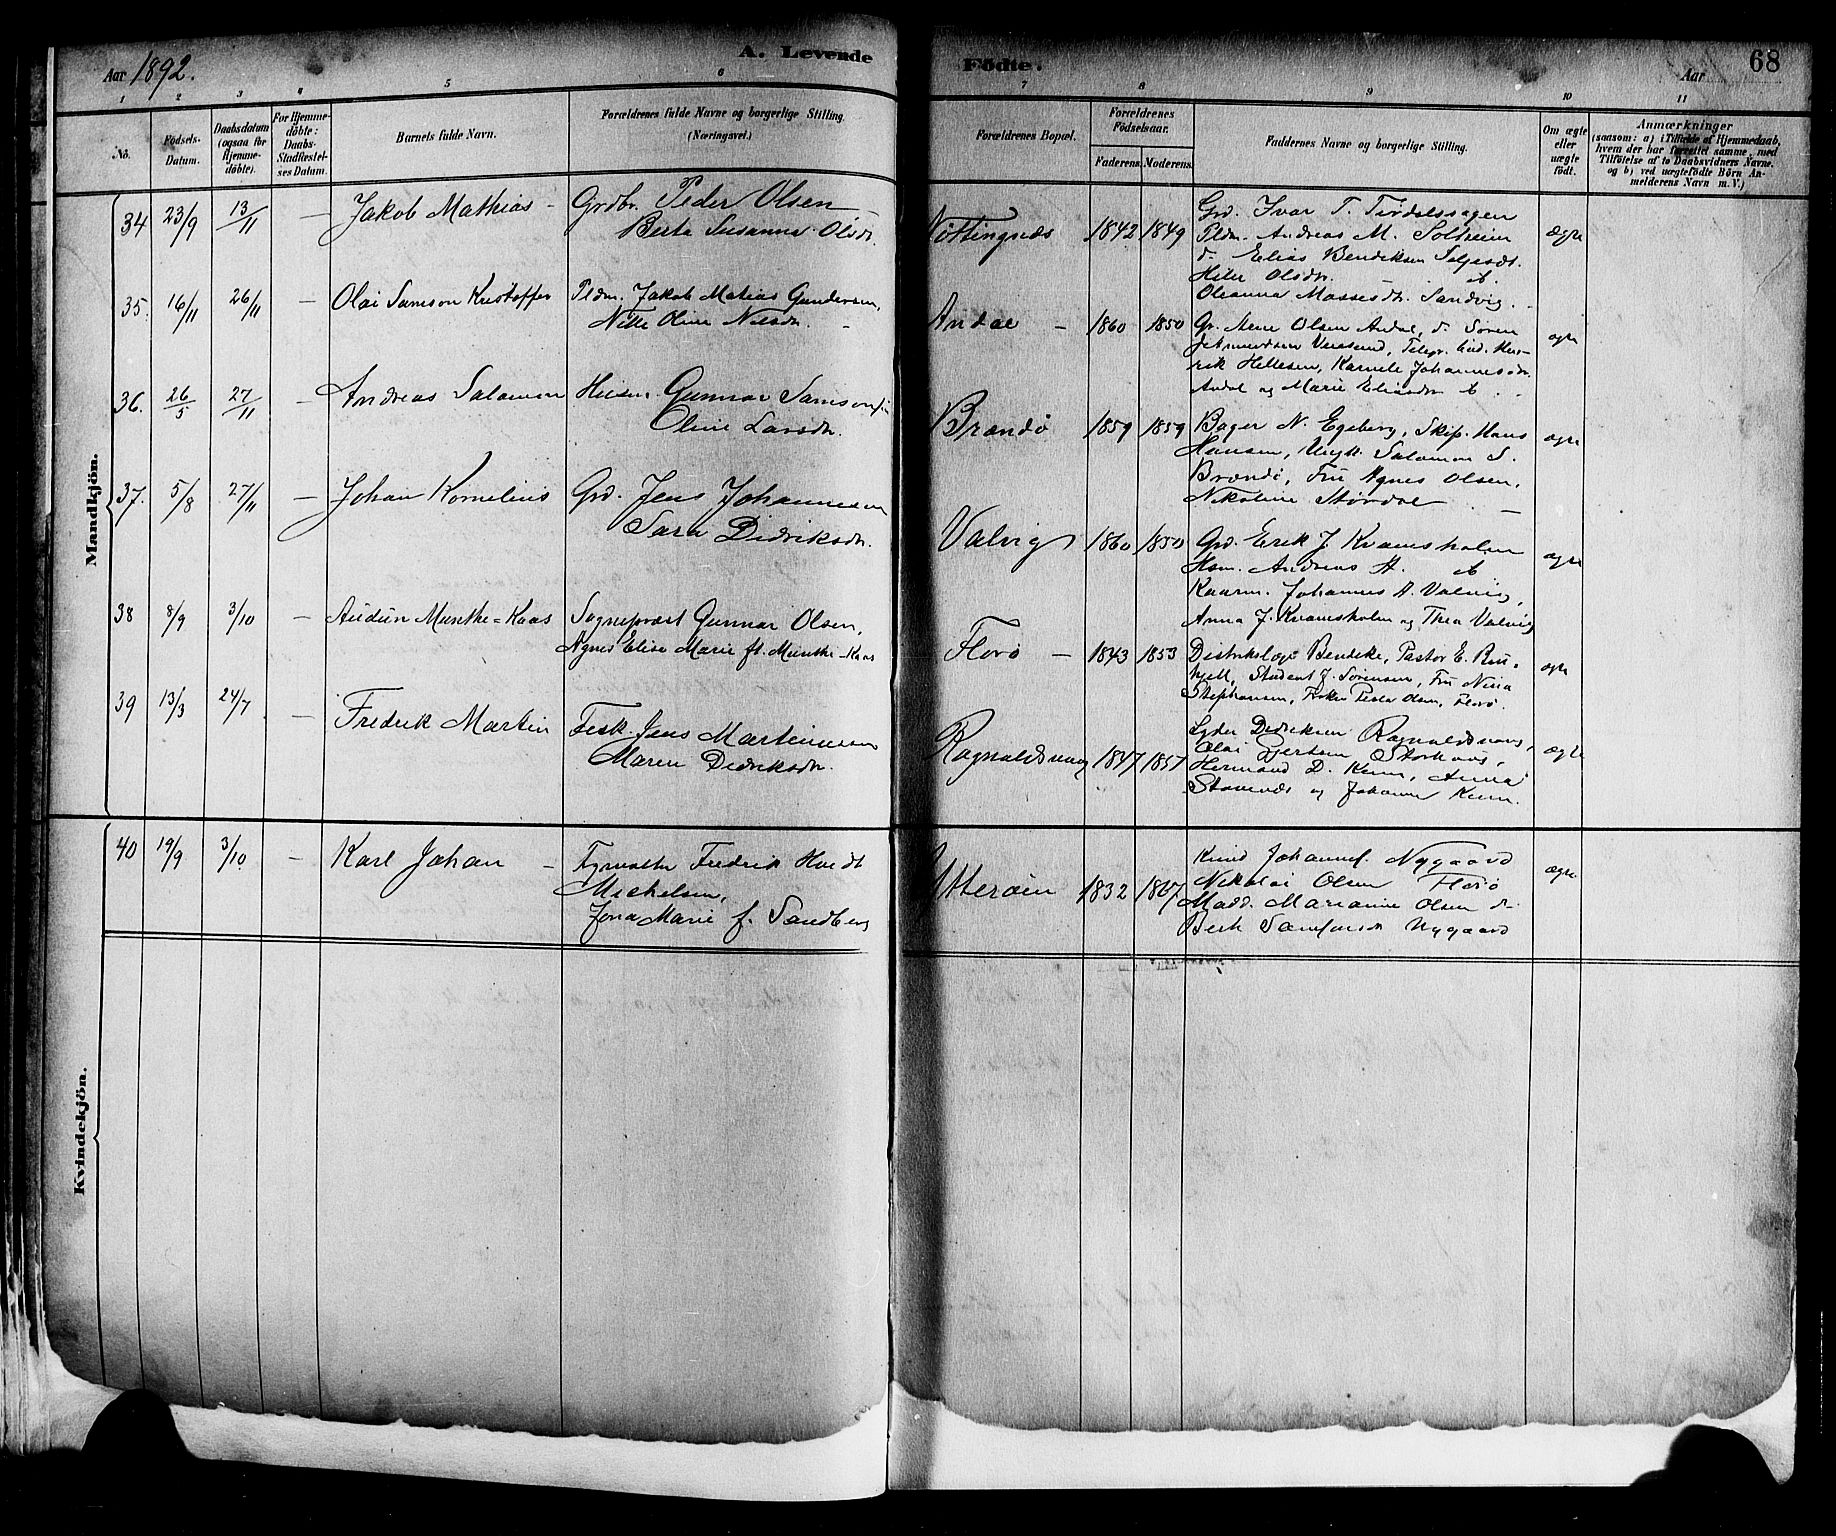 Aar 1892.
A. Levende
Födte.
Aar
68
1 2 3 4 5 6 7 8 9 10 11
No.
Födsels-
Datum.
Daabsdatum
(ogsaa for
Hjemme-
döbte).
For Hjemme-
döbte:
Daabs-
Stadfæstel-
ses Datum.
Barnets fulde Navn.
Forældrenes fulde Navne og borgerlige Stilling.
(Næringsvei.)
Forældrenes Bopæl.
Forældrenes
Födselsaar.
Faderens. Moderens.
Faddernes Navne og borgerlige Stilling.
Om ægte
eller
uægte
født.
Anmærkninger
(saasom: a) i Tilfælde af Hjemmedaab,
hvem der har forrettet samme, med
Tilföielse af to Daabsvidners Navne,
og b) ved uægtefödte Börn An-
melderens Navn m. V.)
Mandkjön.
34 23/9 13/11 — Jakob Mathias - Grdbr. Peder Olsen
Berta Susanna Olsdr.
1842 1849
Grd. Ivar T.
Pldm. Andreas M. Solheim
d. Elias Bendiksen
Olsdr.
Oleanna Sandvig
ægte
35. 16/11 26/11 — Olai Samson Kristoffer Pldm. Jakob Matias Gundersen,
Nille Oline Nilsdr.
Andae — 1860 1850
Olsen Andal, d. Søren
Hellesen, Johannesdr.
Andal og Marie Eliasdr.
ægte
36. 26/5 27/11 — Andreas Salomon Gunnar Samson
Oline Larsdr.
Brandö 1859 1859
Bager N. Egeberg, Skip. Hans
Hansen, Salomon S.
Brandö, Fru Agnes Olsen,
Nikoline Stördal
ægte
37. 5/8 27/11 — Johan Kornelius Grd. Jens Johannesen
Sara Didriksdr.
Valvig 1860 1850
Grd. Erik J. Kvamsholm
Hsm. Andreas A.
Johannes A. Valvig,
Anna J. Kvamsholm og Thea Valvig
ægte
38 8/9 3/10 — Audun Munthe-Kaas Sogneprest Gunnar Olsen,
Agnes Elise Marie f. Munthe-Kaas
Florö — 1843 1853
Distriktslæge Bendeke, Pastor E.
Student J. Sörensen, Fru Nina
Stephansen, Peder Olsen, Florö.
ægte
39 13/3 24/7 — Fredrik Martin Fisk. Jens Martinussen
Maren Didriksdr.
Ragnaldsvaag 1847 1857
Lyder Didriksen Ragnaldsvaag,
Olai Gjertsen
Hermand D. Kinn, Anna
og Johanne Kinn.
ægte
Kvindekjön.
40 19/9 3/10 — Karl Johan — Fyrvogter Fredrik Hvidt
Mickelsen,
Jona Marie f. Sandberg
Ytteröen 1832 1867
Knud Johannes. Nygaard
Nikolai Olsen Florö
Madd. Marianne Olsen d.
Samsonsdr Nygaard
ægte